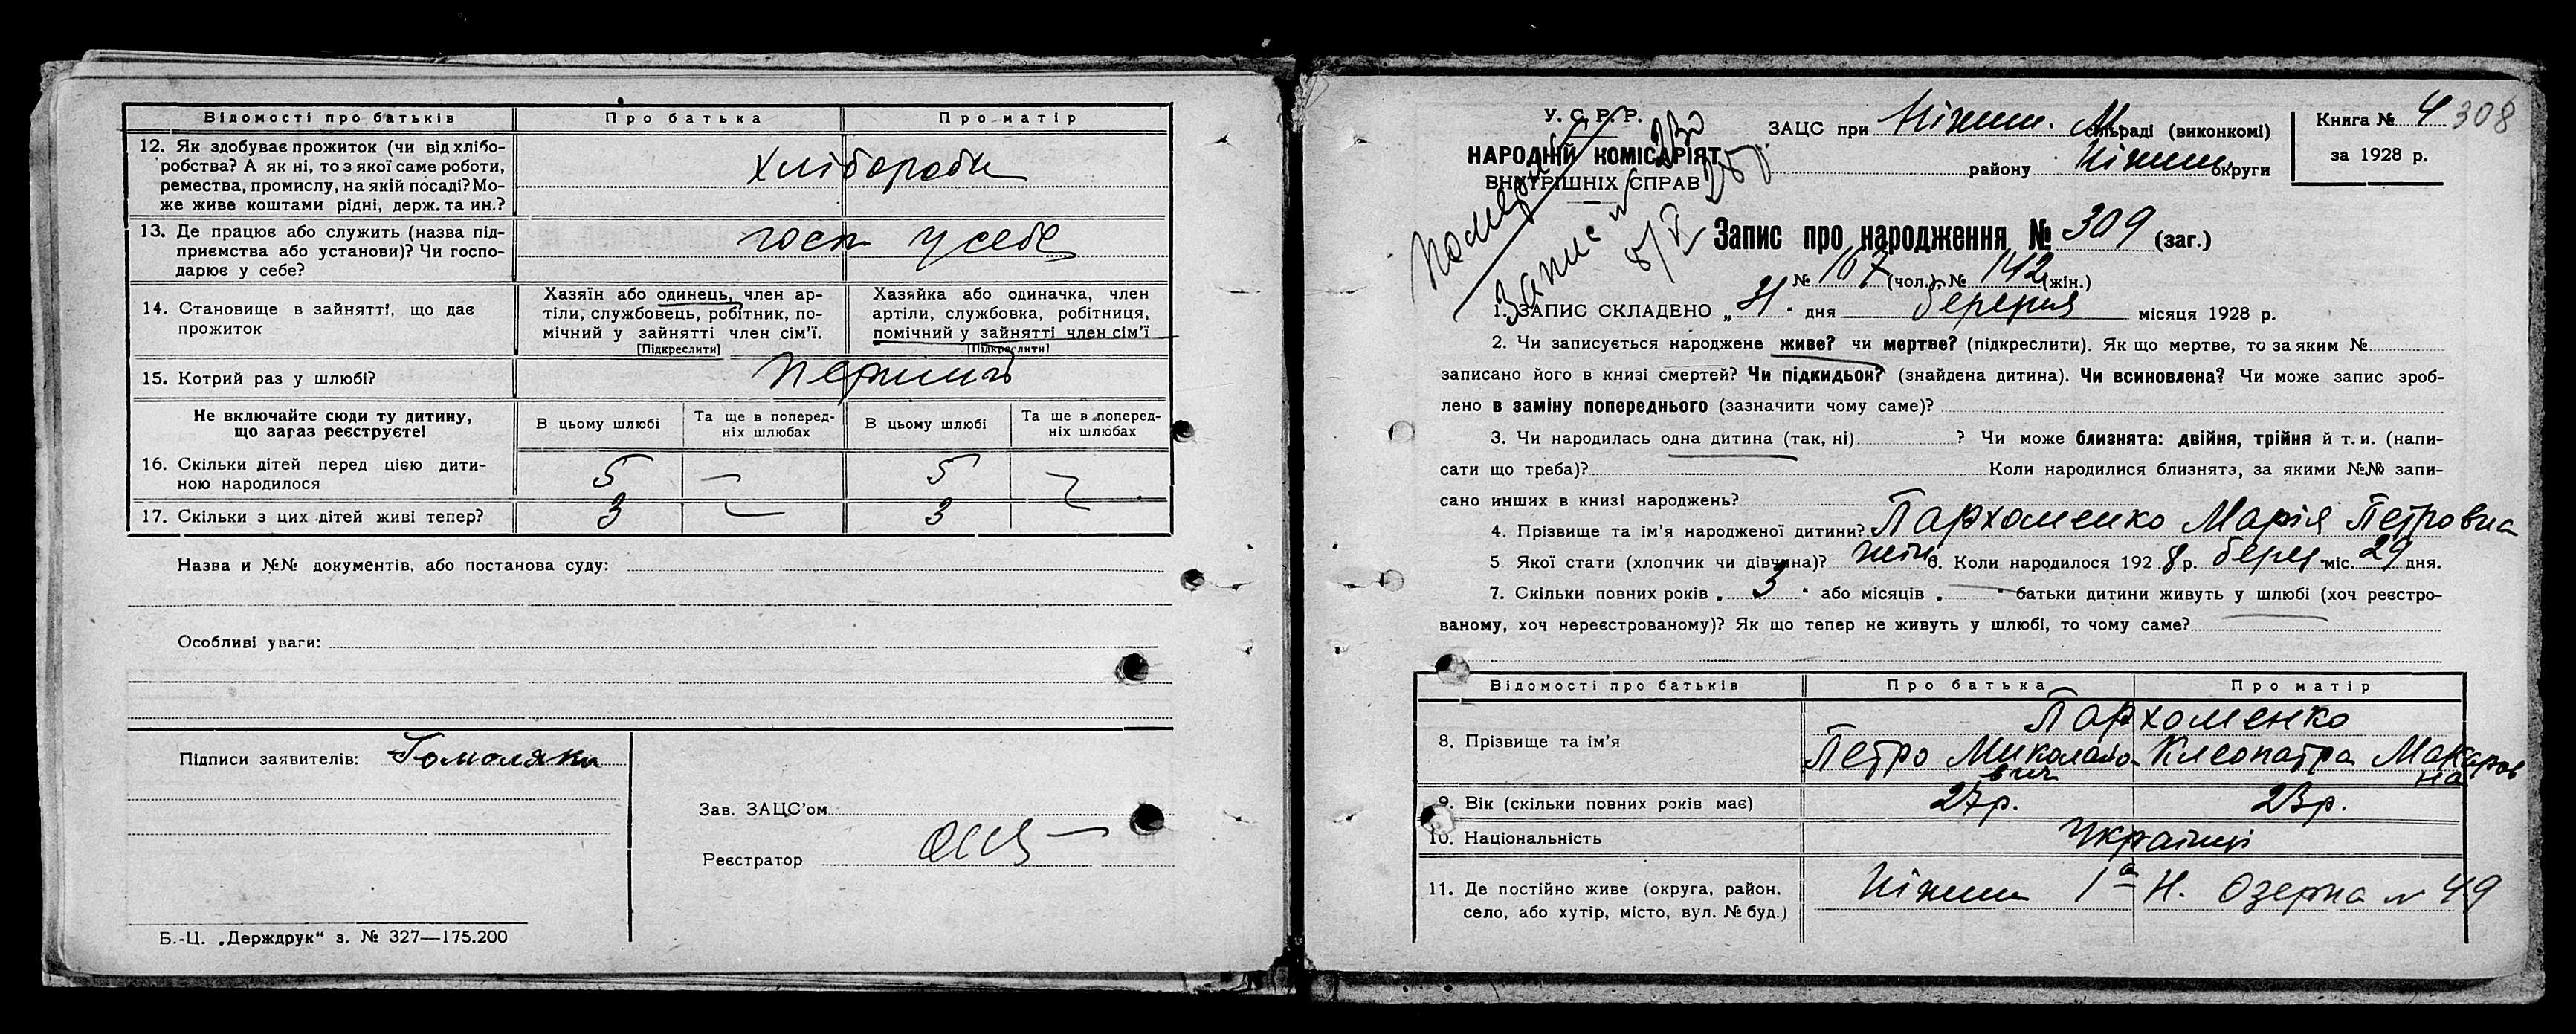 Відомості про батьків Про батька Про матір
12. Як здобуває прожиток (чи від хлібо-
робства? А як ні, то з якої саме роботи,
ремества, промислу, на якій посаді? Мо-
же живе коштами рідні, держ. та ин.?
хлібороби
13. Де працює або служить (назва під-
приємства або установи)? Чи госпо-
дарює у себе?
госп у себе
14. Становище в зайнятті, що дає
прожиток
Хазяїн або одинець, член ар-
тіли, службовець, робітник, по-
мічний у зайнятті член сім’ї.
[Підкреслити]
Хазяйка або одиначка, член
артіли, службовка, робітниця,
помічний у зайнятті член сім’ї
[Підкреслити]
15. Котрий раз у шлюбі? перший
Не включайте сюди ту дитину,
що зараз реєструєте!
В цьому шлюбі
Та ще в поперед-
ніх шлюбах
В цьому шлюбі
Та ще в поперед-
ніх шлюбах
16. Скільки дітей перед цією дити-
ною народилося
5 — 5 —
17. Скільки з цих дітей живі тепер? 3 — 3 —
Назва и №№ документів, або постанова суду:
Особливі уваги:
Підписи заявителів: Гомоляка
Зав. ЗАЦС’ом
Реєстратор
Б.-Ц. „Держдрук“ з. № 327—175.200
У. С. Р. Р.
НАРОДНІЙ КОМІСАРІЯТ
ВНУТРІШНІХ СПРАВ
Запис № 230
8/V 28 р.
ЗАЦС при Ніжин. М. сільраді (виконкомі)
району Ніжин. округи
Книга № 4 308
за 1928 р.
Запис про народження № 309 (заг.)
№ 167 (чол.) № 142 (жін.)
1. ЗАПИС СКЛАДЕНО „31“ дня березня місяця 1928 р.
2. Чи записується народжене живе? чи мертве? (підкреслити). Як що мертве, то за яким №
записано його в книзі смертей? Чи підкидьок? (знайдена дитина). Чи всиновлена? Чи може запис зроб-
лено в заміну попереднього (зазначити чому саме)?
3. Чи народилась одна дитина (так, ні) ? Чи може близнята: двійня, трійня й т. и. (напи-
сати що треба)? Коли народилися близнята, за якими №№ запи-
сано инших в книзі народжень?
4. Прізвище та ім’я народженої дитини? Пархоменко Марія Петровна
5 Якої стати (хлопчик чи дівчина)? жін 6. Коли народилося 1928 р. берез міс. 29 дня.
7. Скільки повних років „ 3 “ або місяців „ — “ батьки дитини живуть у шлюбі (хоч реєстро-
ваному, хоч нереєстрованому)? Як що тепер не живуть у шлюбі, то чому саме?
Відомості про батьків Про батька Про матір
8. Прізвище та ім’я
Пархоменко
Петро Миколайо-
вич
Клеопатра Макаров
на
9. Вік (скільки повних років має) 27 р. 23 р.
10. Національність Українці
11. Де постійно живе (округа, район.
село, або хутір, місто, вул. № буд.)
Ніжин 1а Н. Озерна № 49